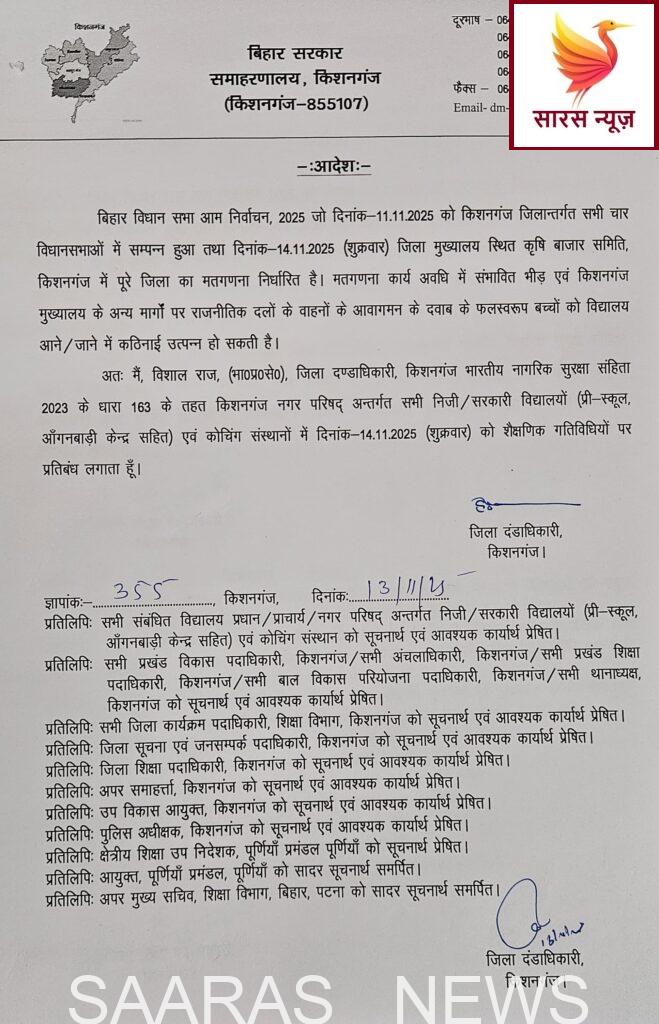 किशनगंज
बिहार सरकार
समाहरणालय, किशनगंज
(किशनगंज–855107)
दूरभाष – 06
06
06
06
फैक्स – 06
Email- dm-
सारस न्यूज़
–:आदेश:–
बिहार विधान सभा आम निर्वाचन, 2025 जो दिनांक–11.11.2025 को किशनगंज जिलान्तर्गत सभी चार
विधानसभाओं में सम्पन्न हुआ तथा दिनांक–14.11.2025 (शुक्रवार) जिला मुख्यालय स्थित कृषि बाजार समिति,
किशनगंज में पूरे जिला का मतगणना निर्धारित है। मतगणना कार्य अवधि में संभावित भीड़ एवं किशनगंज
मुख्यालय के अन्य मार्गों पर राजनीतिक दलों के वाहनों के आवागमन के दवाब के फलस्वरूप बच्चों को विद्यालय
आने/जाने में कठिनाई उत्पन्न हो सकती है।
अतः मैं, विशाल राज, (भा०प्र०से०), जिला दण्डाधिकारी, किशनगंज भारतीय नागरिक सुरक्षा संहिता
2023 के धारा 163 के तहत किशनगंज नगर परिषद् अन्तर्गत सभी निजी/सरकारी विद्यालयों (प्री–स्कूल,
आँगनबाड़ी केन्द्र सहित) एवं कोचिंग संस्थानों में दिनांक–14.11.2025 (शुक्रवार) को शैक्षणिक गतिविधियों पर
प्रतिबंध लगाता हूँ।
जिला दंडाधिकारी,
किशनगंज।
ज्ञापांकः–355, किशनगंज, दिनांकः13/11/25
प्रतिलिपिः सभी संबंधित विद्यालय प्रधान/प्राचार्य/नगर परिषद् अन्तर्गत निजी/सरकारी विद्यालयों (प्री–स्कूल,
आँगनबाड़ी केन्द्र सहित) एवं कोचिंग संस्थान को सूचनार्थ एवं आवश्यक कार्यार्थ प्रेषित।
प्रतिलिपिः सभी प्रखंड विकास पदाधिकारी, किशनगंज/सभी अंचलाधिकारी, किशनगंज/सभी प्रखंड शिक्षा
पदाधिकारी, किशनगंज/सभी बाल विकास परियोजना पदाधिकारी, किशनगंज/सभी थानाध्यक्ष,
किशनगंज को सूचनार्थ एवं आवश्यक कार्यार्थ प्रेषित।
प्रतिलिपिः सभी जिला कार्यक्रम पदाधिकारी, शिक्षा विभाग, किशनगंज को सूचनार्थ एवं आवश्यक कार्यार्थ प्रेषित।
प्रतिलिपिः जिला सूचना एवं जनसम्पर्क पदाधिकारी, किशनगंज को सूचनार्थ एवं आवश्यक कार्यार्थ प्रेषित।
प्रतिलिपिः जिला शिक्षा पदाधिकारी, किशनगंज को सूचनार्थ एवं आवश्यक कार्यार्थ प्रेषित।
प्रतिलिपिः अपर समाहर्त्ता, किशनगंज को सूचनार्थ एवं आवश्यक कार्यार्थ प्रेषित।
प्रतिलिपिः उप विकास आयुक्त, किशनगंज को सूचनार्थ एवं आवश्यक कार्यार्थ प्रेषित।
प्रतिलिपिः पुलिस अधीक्षक, किशनगंज को सूचनार्थ एवं आवश्यक कार्यार्थ प्रेषित।
प्रतिलिपिः क्षेत्रीय शिक्षा उप निदेशक, पूर्णियाँ प्रमंडल पूर्णियाँ को सूचनार्थ प्रेषित।
प्रतिलिपिः आयुक्त, पूर्णियाँ प्रमंडल, पूर्णियाँ को सादर सूचनार्थ समर्पित।
प्रतिलिपिः अपर मुख्य सचिव, शिक्षा विभाग, बिहार, पटना को सादर सूचनार्थ समर्पित।
जिला दंडाधिकारी,
किशनगंज।
SAARAS NEWS